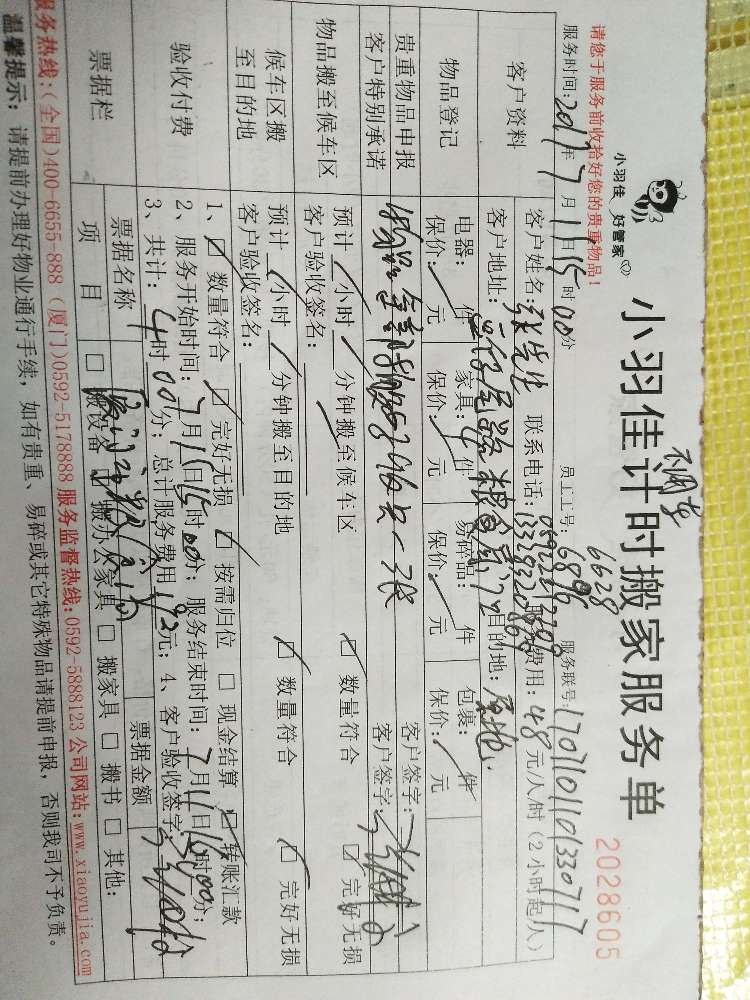 小羽佳 好管家
小羽佳计时搬家服务单
2028605
调车
请您于服务前收拾好您的贵重物品!
员工工号: 6628
6896
服务联号:
服务时间: 2017年7月11日15时00分
客户资料
客户姓名: 张先生 联系电话: 服务费用: 48元/人时(2小时起/人)
客户地址: 目的地: 原地
物品登记
电器: 件 家具: 件 易碎品: 件 包裹: 件
保价: 元 保价: 元 保价: 元 保价: 元
贵重物品申报
客户签字:
客户特别承诺
客户签字:
物品搬至候车区
预计 小时 分钟搬至候车区 □ 数量符合 □ 完好无损
客户验收签名:
候车区搬至目的地
预计 小时 分钟搬至目的地 □ 数量符合 □ 完好无损
客户验收签名:
验收付费
1、□ 数量符合 □ 完好无损 □ 按需归位 □ 现金结算 □ 转账汇款
2、服务开始时间: 7月11日15时00分; 服务结束时间: 7月11日 时00分;
3、共计: 4时00分; 总计服务费用192元; 4、客户验收签字:
票据栏
票据名称 票据金额
项目 □ 搬设备 □ 搬办公家具 □ 搬家具 □ 搬书 □ 其他:
服务热线:(全国)400-6655-888 (厦门)0592-5178888 服务监督热线:0592-5888123 公司网站:www.xiaoyujia.com
温馨提示: 请提前办理好物业通行手续, 如有贵重、易碎或其它特殊物品请提前申报, 否则我司不予负责。